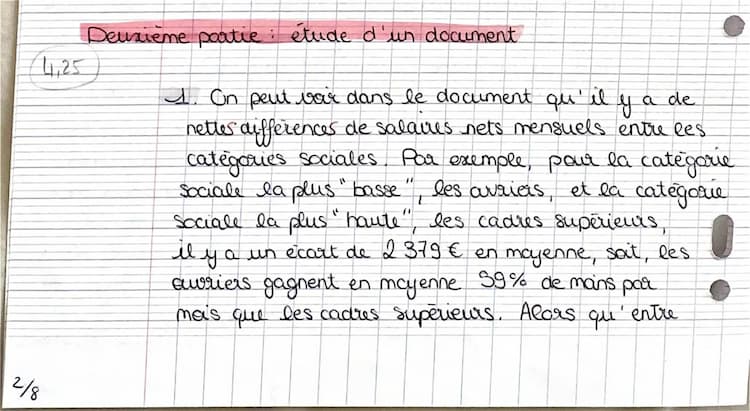 Deuxième partie : étude d'un document
4,25
1. On peut voir dans le document qu'il y a de
nettes différences de salaires nets mensuels entre les
catégories sociales. Par exemple, pour la catégorie
sociale la plus "basse", les ouvriers, et la catégorie
sociale la plus "haute", les cadres supérieurs,
il y a un écart de 2 379 € en moyenne, soit, les
ouvriers gagnent en moyenne 59% de moins par
mois que les cadres supérieurs. Alors qu'entre
2/8